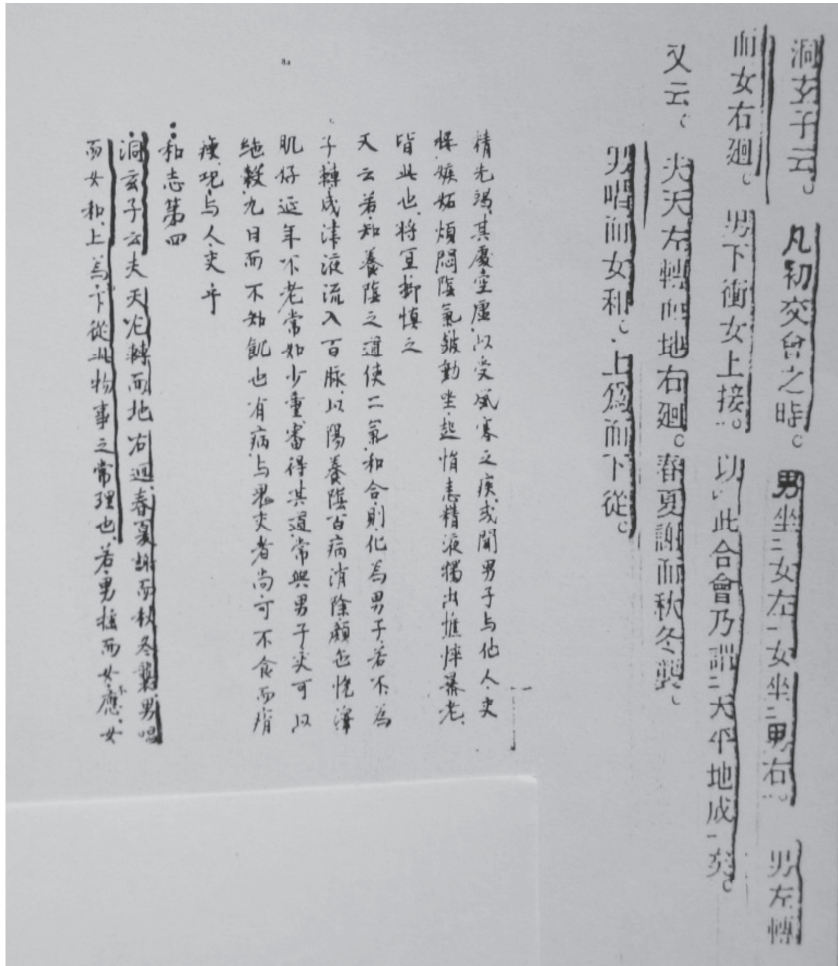 洞玄子云。凡初交會之時。男坐二女左一女坐二男右一。男左轉
而女右廻。男下衝女上接。以此合會乃謂二天平地成一矣。
又云。夫天左轉而地右廻。春夏謝而秋冬襲。
男唱而女和。上爲而下從。
精先竭其處空虛以受風寒之疾或聞男子与他人交
嫉妬煩悶陰氣皷動坐起悁恚精液獨出憔悴暴老
皆此也將宜抑慎之
又云若知養陰之道使二氣和合則化為男子若不為
子轉成津液流入百脉以陽養陰百病消除顏色悅澤
肌好延年不老常如少童審得其道常與男子交可以
絕穀九日而不知飢也有病与鬼交者尚可不食而消
瘦況与人交乎
和志第四
洞玄子云夫天左轉而地右迴春夏謝而秋冬襲男唱
而女和上為下從此物事之常理也若男搖而女不應女